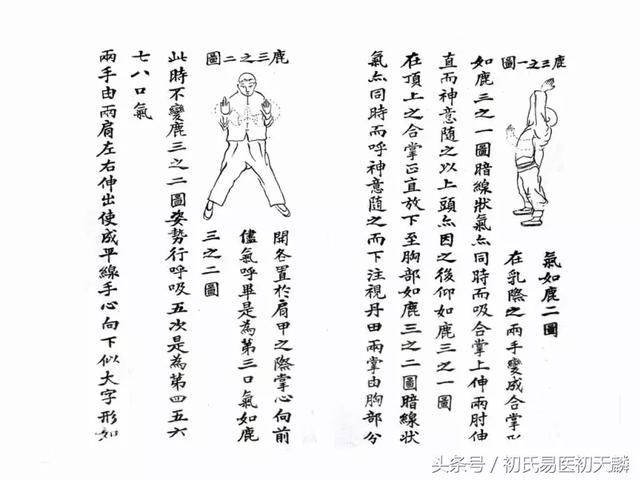 鹿三之一圖
氣如鹿二圖
在乳際之兩手變成合掌
如鹿三之一圖暗線狀氣亦同時而吸合掌上伸兩肘伸
直而神意隨之以上頭亦因之後仰如鹿三之一圖
在頂上之合掌正直放下至胸部如鹿三之二圖暗線狀
氣亦同時而呼神意隨之而下注視丹田兩掌由胸部分
鹿三之二圖
開各置於肩甲之際掌心向前
儘氣呼畢是為第三口氣如鹿
三之二圖
此時不變鹿三之二圖姿勢行呼吸五次是為第四五六
七八口氣
兩手由兩肩左右伸出使成平線手心向下似大字形如
头条号/初氏易医初天麟